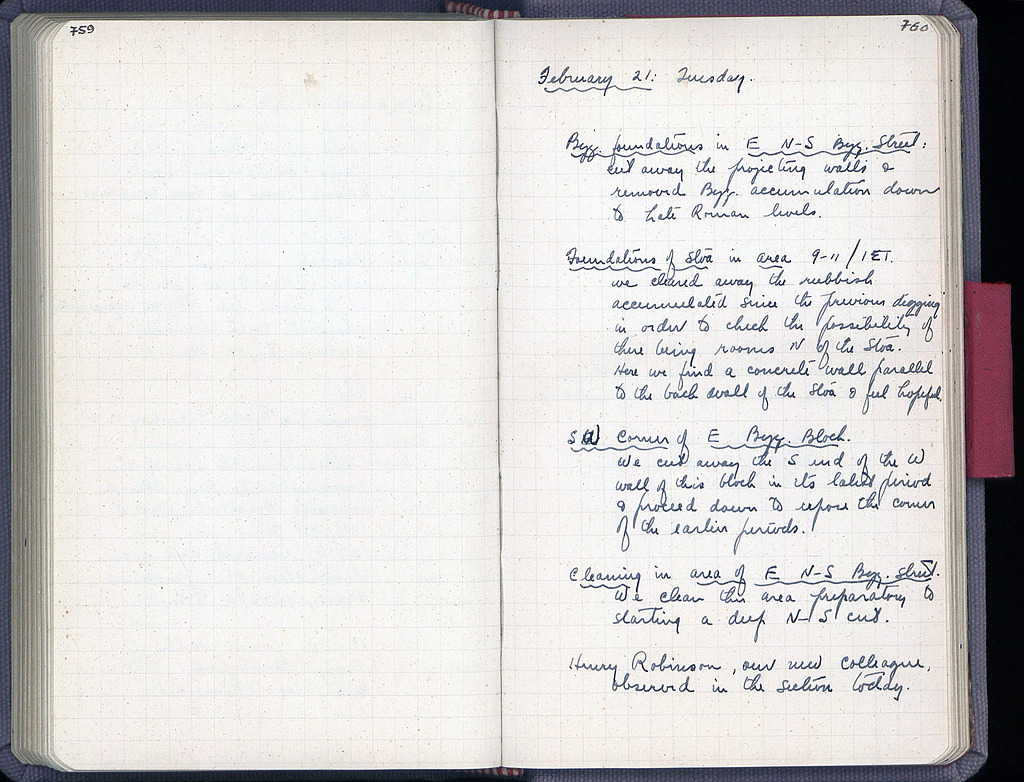 759
760
February 21. Tuesday.
Byz. foundations in E N-S Byz. Street:
cut away the projecting walls &
removed Byz. accumulation down
to Late Roman levels.
Foundations of Stoa in area 9-11/ΙΕΓ.
we cleared away the rubbish
accumulated since the previous digging
in order to check the possibility of
there being rooms N of the Stoa.
Here we find a concrete wall parallel
to the back wall of the Stoa & feel hopeful.
SW Corner of E Byz. Block.
We cut away the S end of the W
wall of this block in its latest period
& proceed down to expose the corner
of the earlier periods.
Cleaning in area of E N-S Byz. Street.
We clean this area preparatory to
starting a deep N-S cut.
Henry Robinson, our new colleague,
observed in the section today.